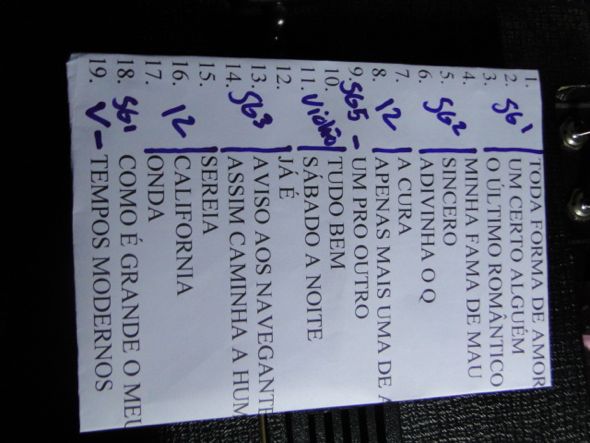 1. TODA FORMA DE AMOR
2. SG1 UM CERTO ALGUÉM
3. O ÚLTIMO ROMÂNTICO
4. MINHA FAMA DE MAU
5. SG2 SINCERO
6. ADIVINHA O Q
7. A CURA
8. 12 APENAS MAIS UMA DE A
9. SG5 – UM PRO OUTRO
10. TUDO BEM
11. Violão SÁBADO A NOITE
12. JÁ É
13. AVISO AOS NAVEGANTE
14. SG3 ASSIM CAMINHA A HUM
15. SEREIA
16. 12 CALIFORNIA
17. ONDA
18. SG1 COMO É GRANDE O MEU
19. V – TEMPOS MODERNOS